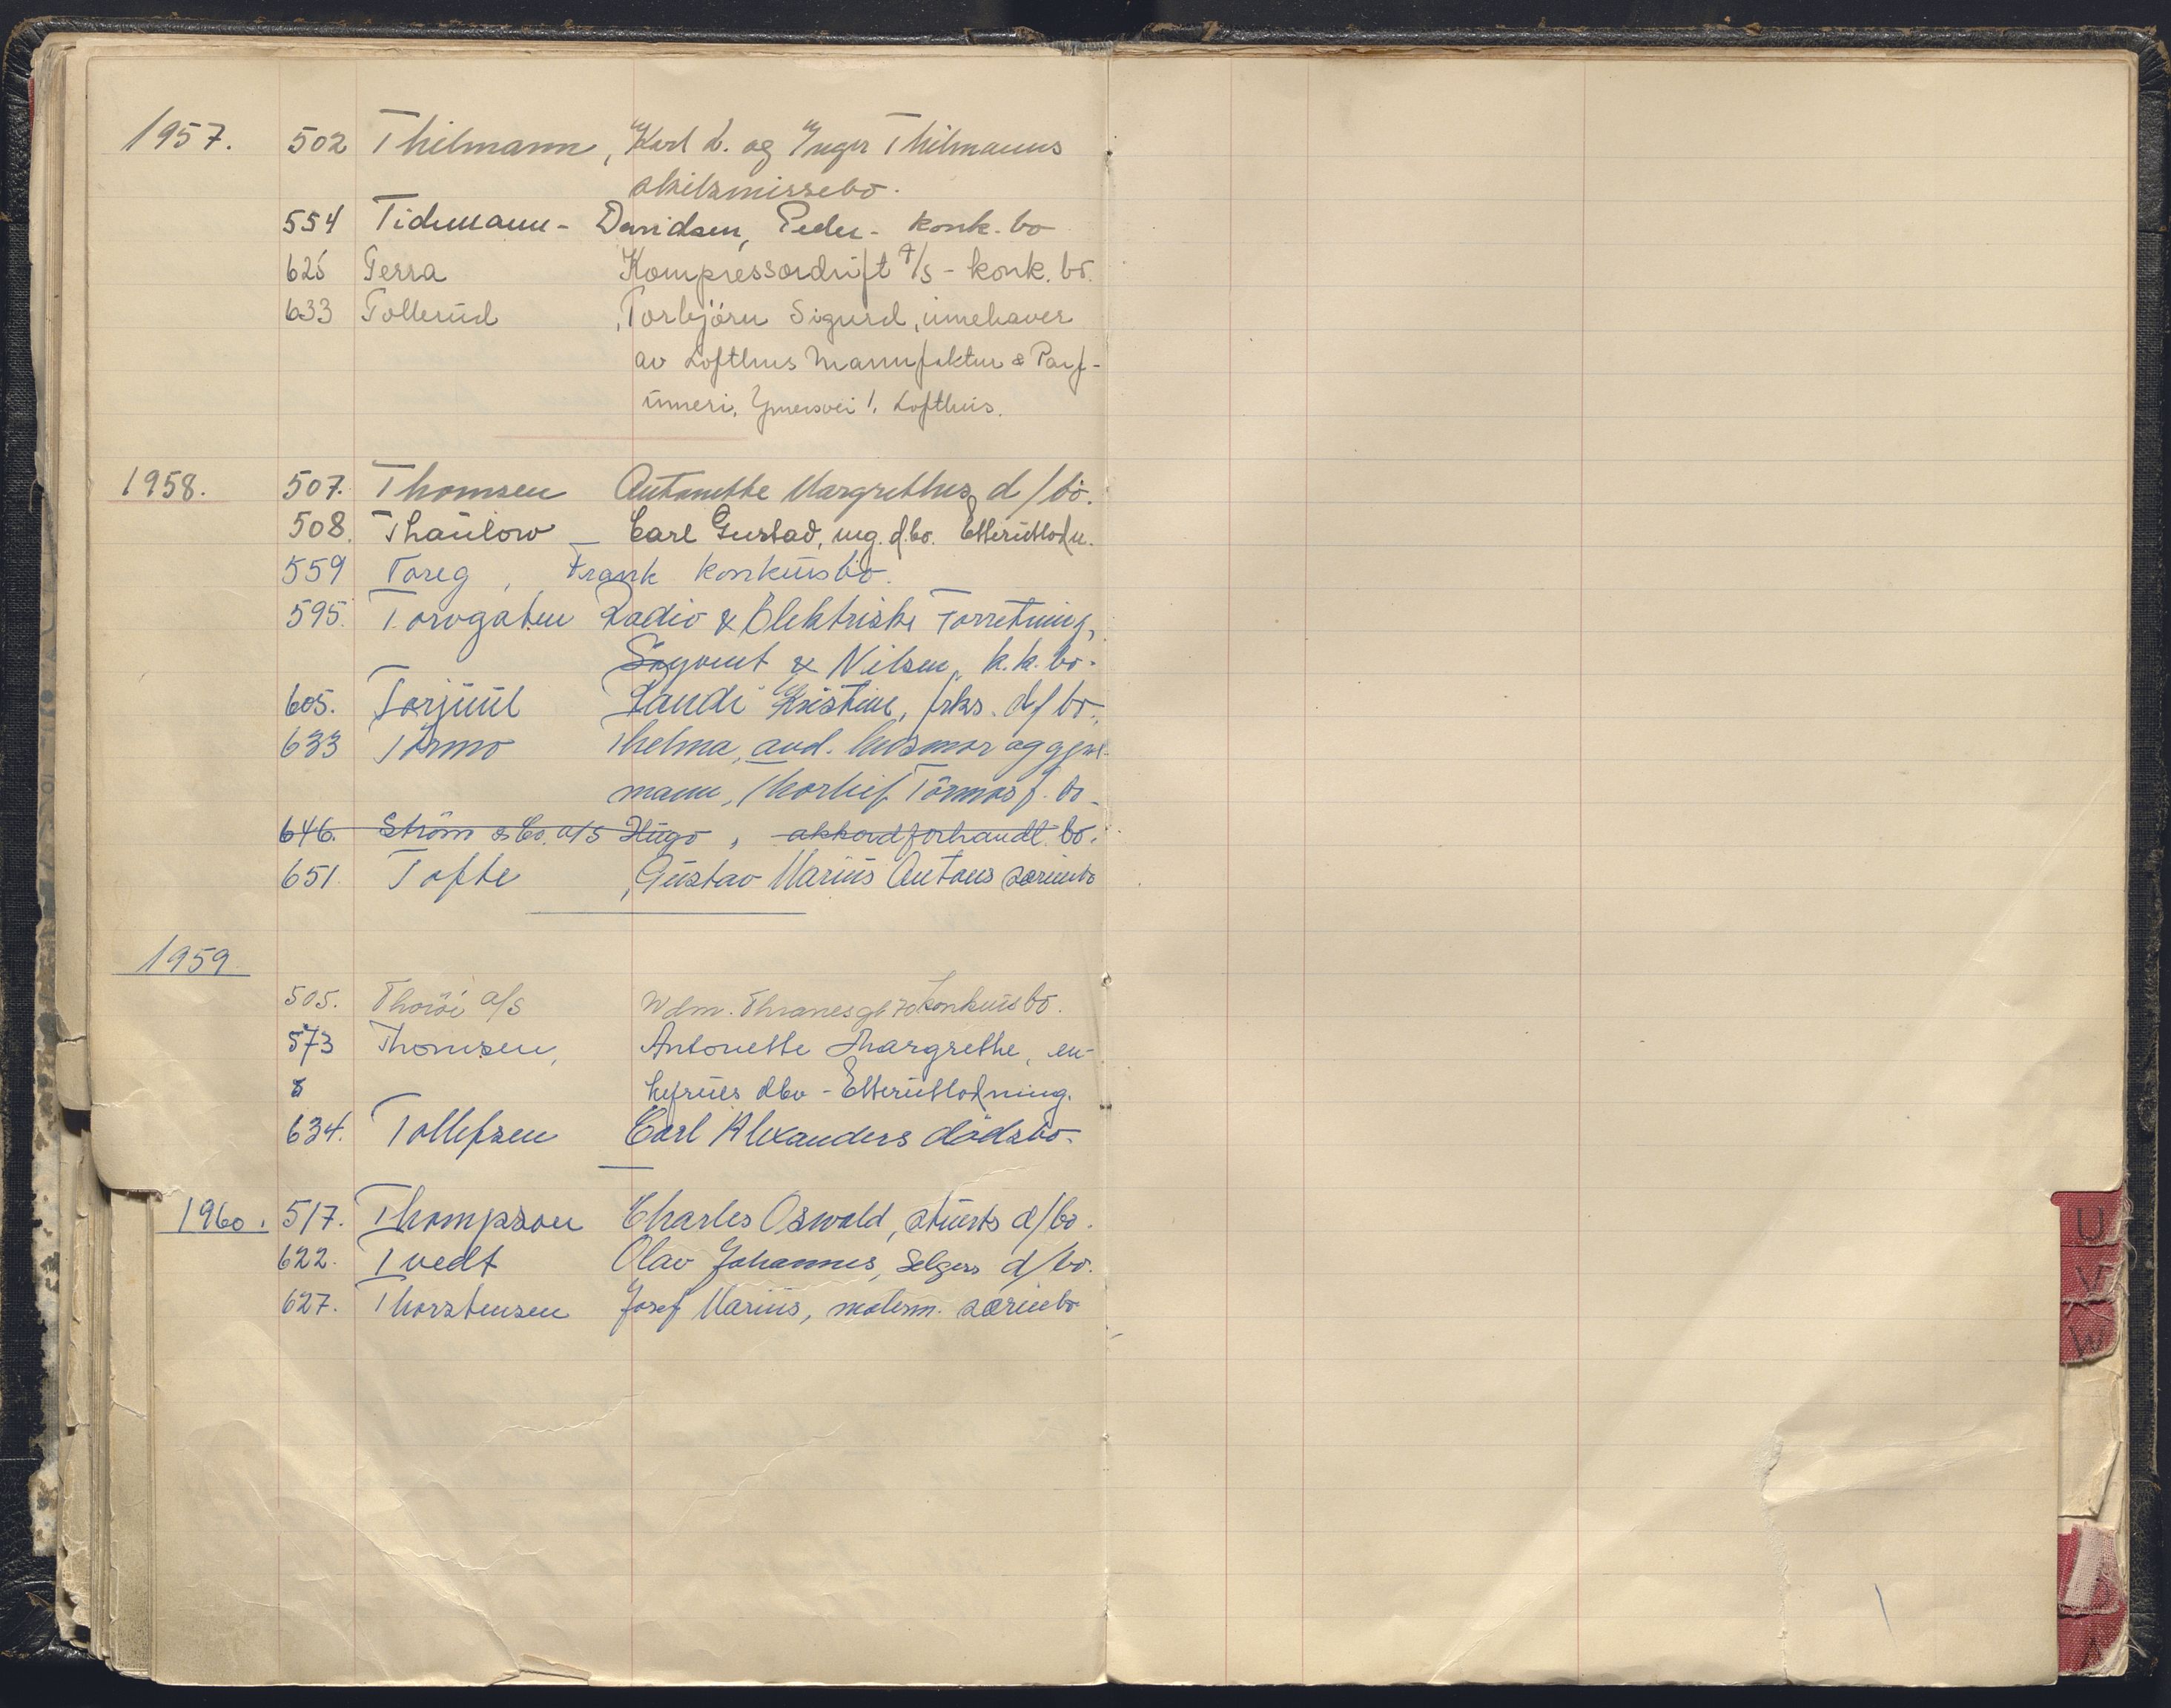 1957. 502 Thilmann, Karl L. og Inger Thilmanns
skilsmissebo.
554 Tidemann - Davidsen, Peder - konk. bo
625 Terra Kompressordrift A/S - konk. bo.
633 Tollerud, Torbjörn Sigurd, innehaver
av Lofthus Manufaktur & Parf-
ümeri, Ymersvei 1, Lofthus.
1958. 507. Thomsen Antonette Margrethes d/bo.
508. Thaulow - Carl Gustav, ing. d.bo. Etterutlodn.
559 Toreg, Frank konkursbo.
595. Torvgaten Radio & Elektriske Forretning,
& Nilsen, k.k. bo.
605. Torjuul Randi Kristine, frks. d/bo.
633 Törmo Thelma, avd. husmor og gjen-
mann, Thorleif Törmos f. bo.
646. Ström & Co. a/s Hugo, akkordforhandl. bo.
651. Tofte, Gustav Marius Antons særiebo
1959
505. a/s Wdm. Thranesgt 70 konkursbo.
573 Thomsen, Antonette Margrethe, en-
kefrues dbo - Etterutlodning.
634. Tollefsen Carl Alexanders dödsbo.
1960. 517. Thompson Charles Oswald, stuerts d/bo.
622. Tvedt Olav Johannes, Selgers d/bo.
627. Thorstensen Josef Marius, malerm. særiebo
U
V
W